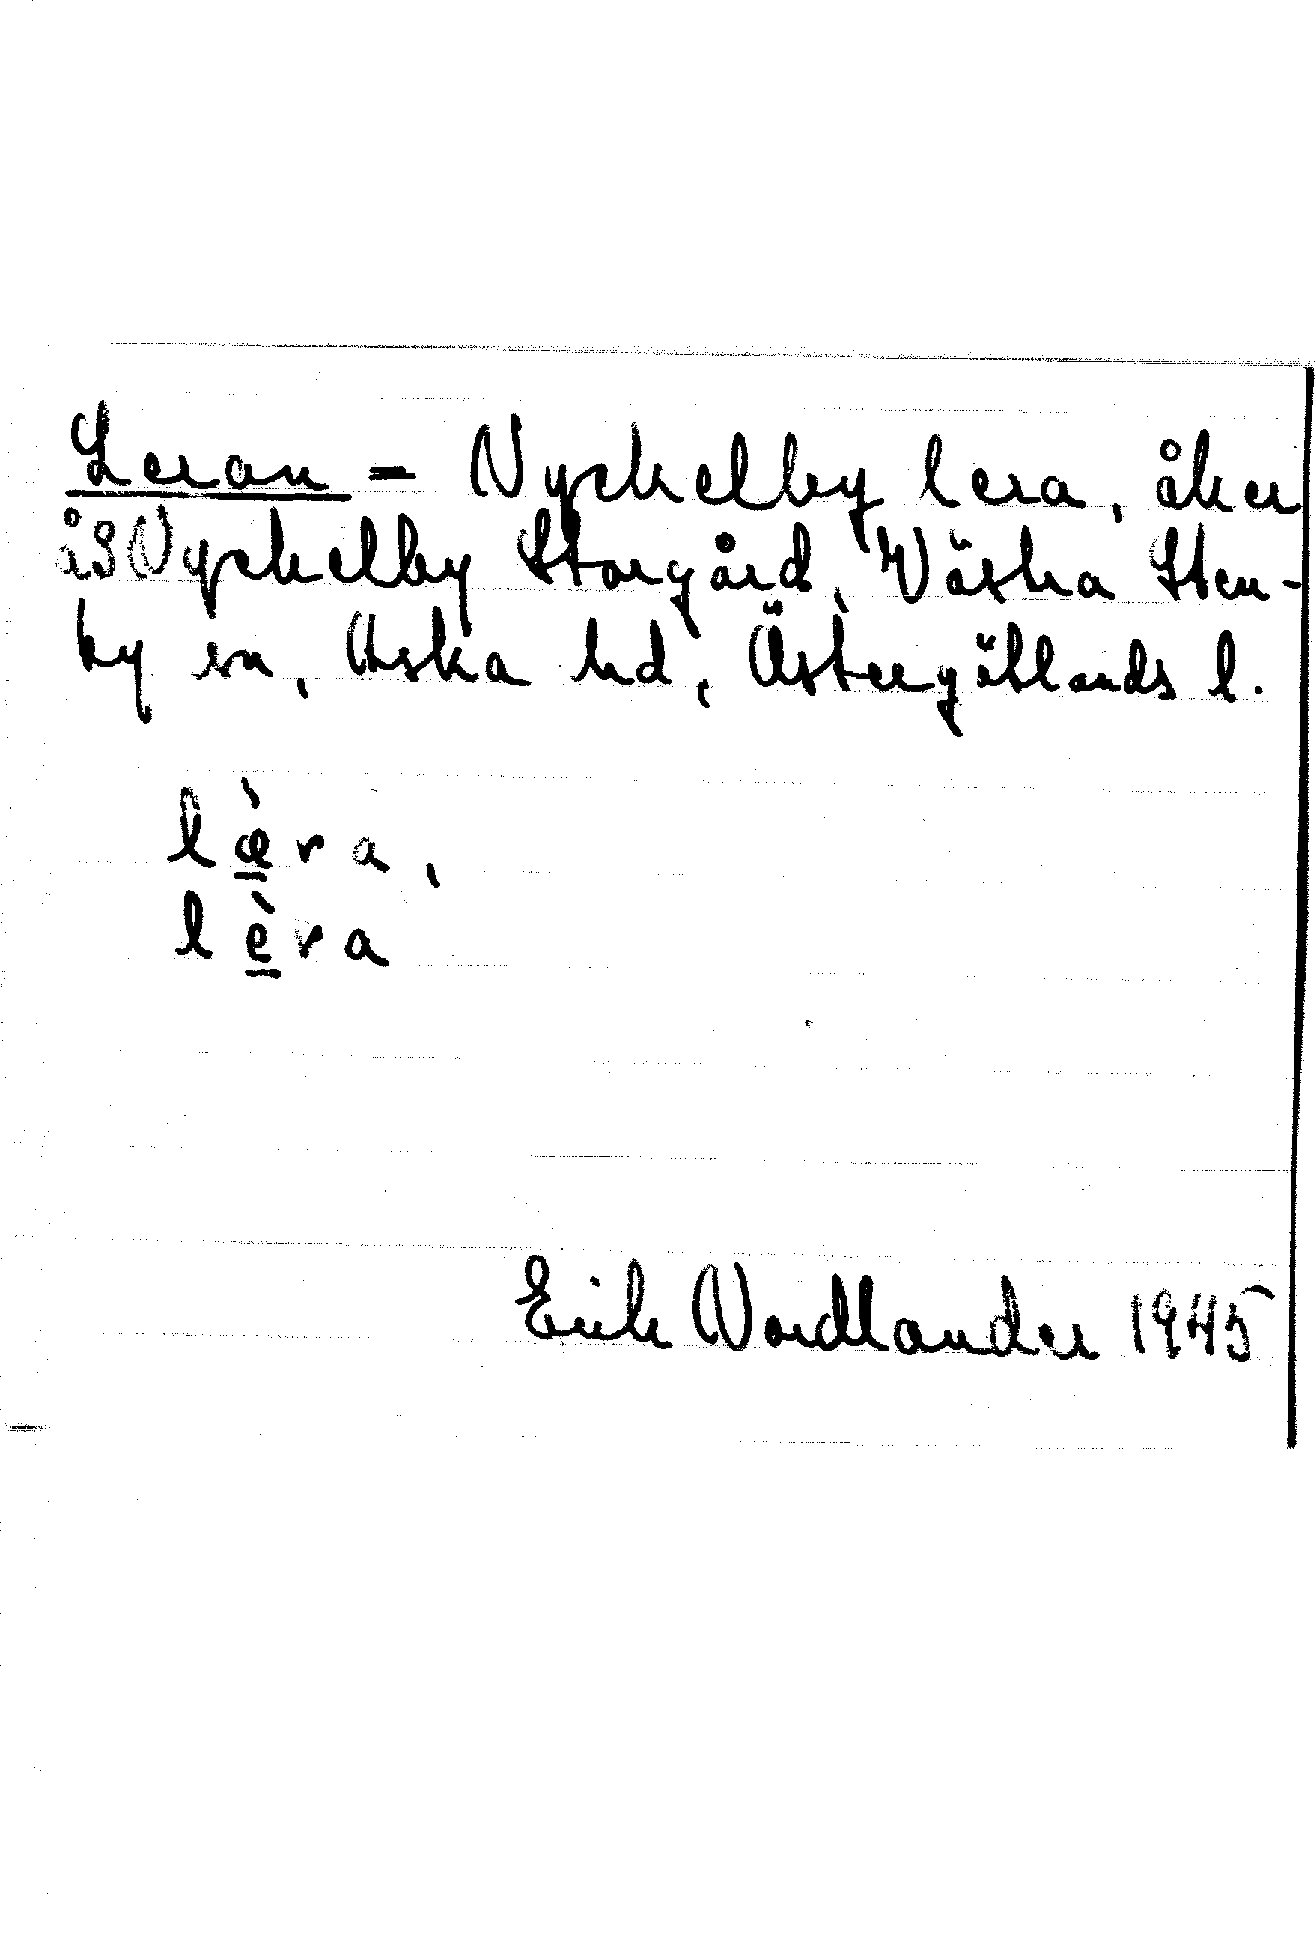 Leran = Nyckelby lera, åker
å3 Nyckelby Storgård, Västra Sten-
by sn, Aska hd, Östergötlands l.
læ̀ra,
lèra
Erik Nordlander 1945